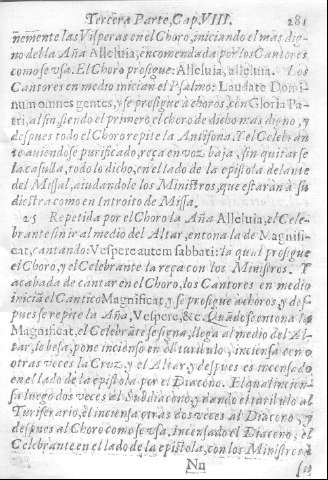 Tercera Parte, Cap. VIII. 281
nemente las Visperas en el Choro, iniciando el mas dig
no della Aña Alleluia, encomendada por los Cantores
como se vsa. El Choro prosigue: Alleluia, alleluia. Los
Cantores en medio inician el Psalmo: Laudate Domi
num omnes gentes, y se prosigue à choros, con Gloria Pa-
tri, al fin, siendo el primero el choro de dicho mas digno, y
despues todo el Choro repite la Antifona. Y el Celebran
te auiendose purificado, reça en voz baja, sin quitarse
la casulla, todo lo dicho, en el lado de la epistola delante
del Missal, aiudandole los Ministros, que estaràn à su
diestra como en Introito de Missa.
25 Repetida por el Choro la Aña Alleluia, el Cele-
brante sin ir al medio del Altar, entona la de Magnifi-
cat, cantando: Vespere autem sabbati: la qual prosigue
el Choro, y el Celebrante la reça con los Ministros. Y
acabada de cantar en el Choro, los Cantores en medio
inicia el Cantico Magnificat, y se prosigue à choros, y des-
pues se repite la Aña, Vespere, &c. Quãdo se entona la
Magnificat, el Celebrãte se signa, llega al medio del Al-
tar, lo besa, pone incienso en el turibulo, y inciensa como
otras veces la Cruz, y el Altar, y despues es incensado
en el lado de la epistola por el Diacono. El qual incien-
sa luego dos veces al Subdiacono, y dando el turibulo al
Turiferario, èl inciensa otras dos veces al Diacono, y
despues al Choro como se vsa. Incensado el Diacono, el
Celebrante en el lado de la epistola, con los Ministros à
Nn su